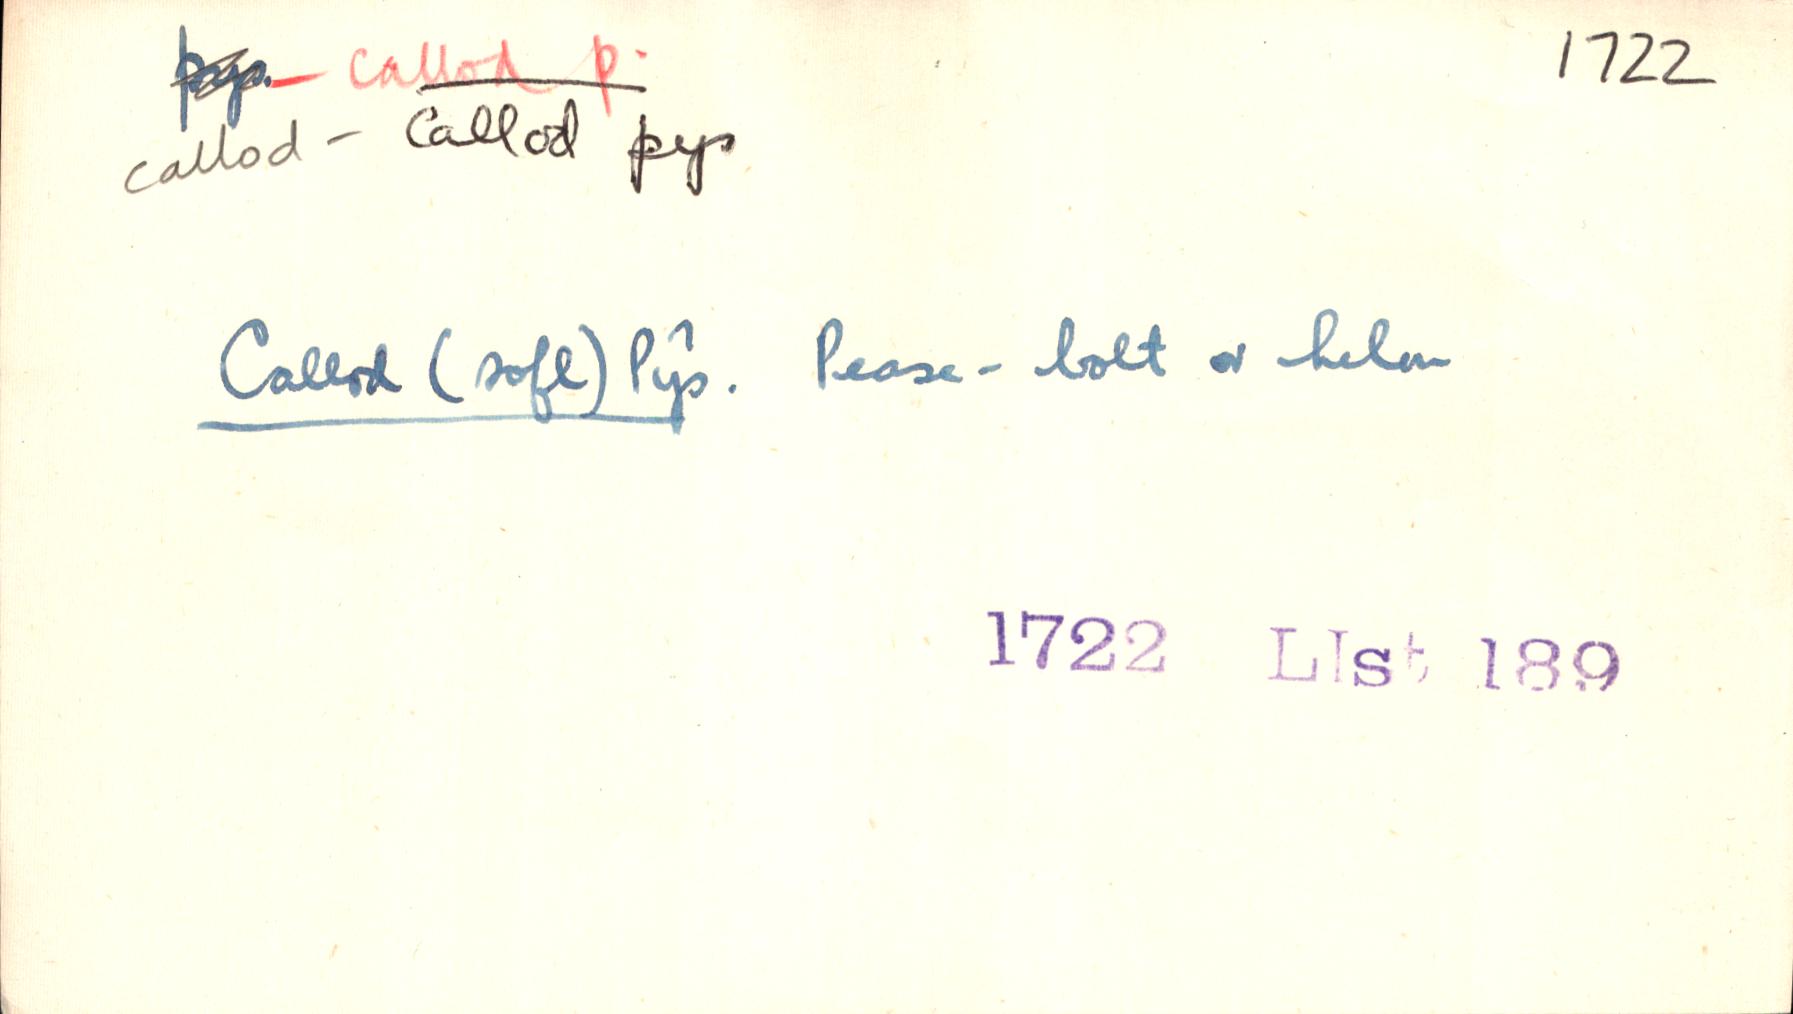 pys. – callod p. 1722
callod – Callod pys
Callod (sofl) Pŷs. Pease-bolt or helm
1722 LIst 189